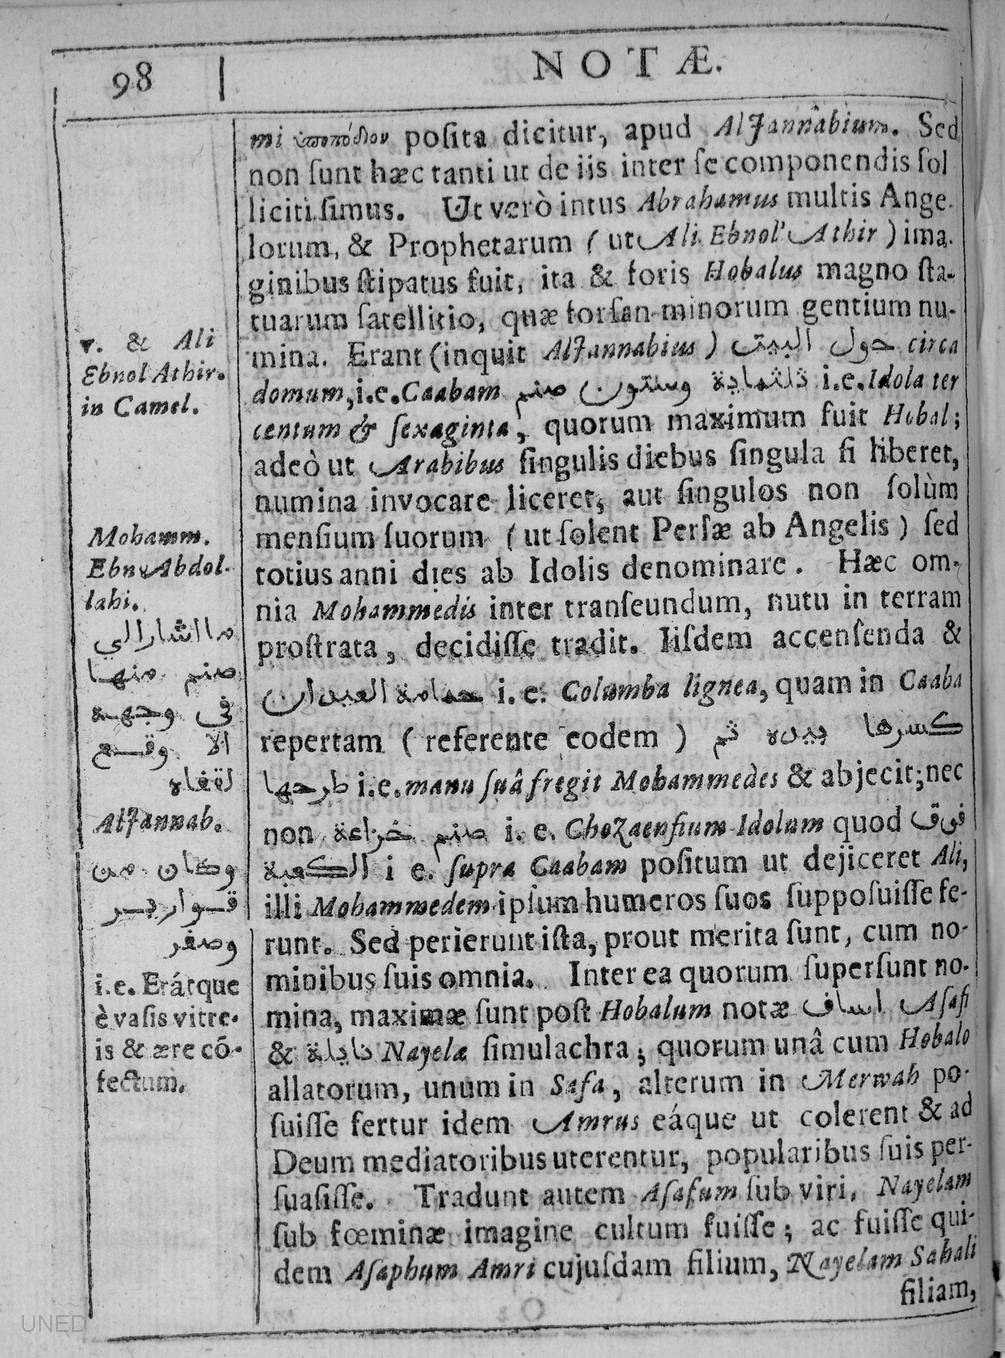 98
NOTÆ.
mi ὑποπόδιον posita dicitur, apud AlJannâbium. Sed
non sunt hæc tanti ut de iis inter se componendis sol
licitissimus. Ut verò intus Abrahamus multis Ange-
lorum, & Prophetarum (ut Ali Ebnol'Athir) ima-
ginibus stipatus fuit, ita & foris Hobalus magno sta-
tuarum satellitio, quæ forsan minorum gentium nu-
mina. Erant (inquit AlJannabius) حول البيت circa
domum, i.e. Caabam صنم وستون ثلثماية i.e. Idola ter
centum & sexaginta, quorum maximum fuit Hobal;
adeò ut Arabibus singulis diebus singula si liberet,
numina invocare liceret, aut singulos non solùm
mensium suorum (ut solent Persæ ab Angelis) sed
totius anni dies ab Idolis denominare. Hæc om-
nia Mohammedis inter transeundum, nutu in terram
prostrata, decidisse tradit. Iisdem accensenda &
حمامة العيدان i.e. Columba lignea, quam in Caaba
repertam (referente eodem) كسرها بيده ثم
طرحها i.e. manu suâ fregit Mohammedes & abjecit; nec
non صنم خزاعة i.e. Chozaensium Idolum quod فوق
الكعبة i e. supra Caabam positum ut dejiceret Ali,
illi Mohammedem ipsum humeros suos supposuisse fe-
runt. Sed perierunt ista, prout merita sunt, cum no-
minibus suis omnia. Inter ea quorum supersunt no-
mina, maximæ sunt post Hobalum notæ اساف Asafi
& نايلة Nayelæ simulachra; quorum unâ cum Hobalo
allatorum, unum in Safa, alterum in Merwah po-
suisse fertur idem Amrus eáque ut colerent & ad
Deum mediatoribus uterentur, popularibus suis per-
suasisse. Tradunt autem Asafum sub viri, Nayelam
sub fœminæ imagine cultum fuisse; ac fuisse qui-
dem Asaphum Amri cujusdam filium, Nayelam Sahali
filiam,
v. & Ali
Ebnol Athir.
in Camel.
Mohamm.
Ebn Abdol-
lahi.
ما اشار الي
صنم منها
في وجهه
الا وقع
لقفاه
AlJannab.
وكان من
قوارير
وصفر
i.e. Erátque
è vasis vitre-
is & ære cõ-
fectum.
UNED